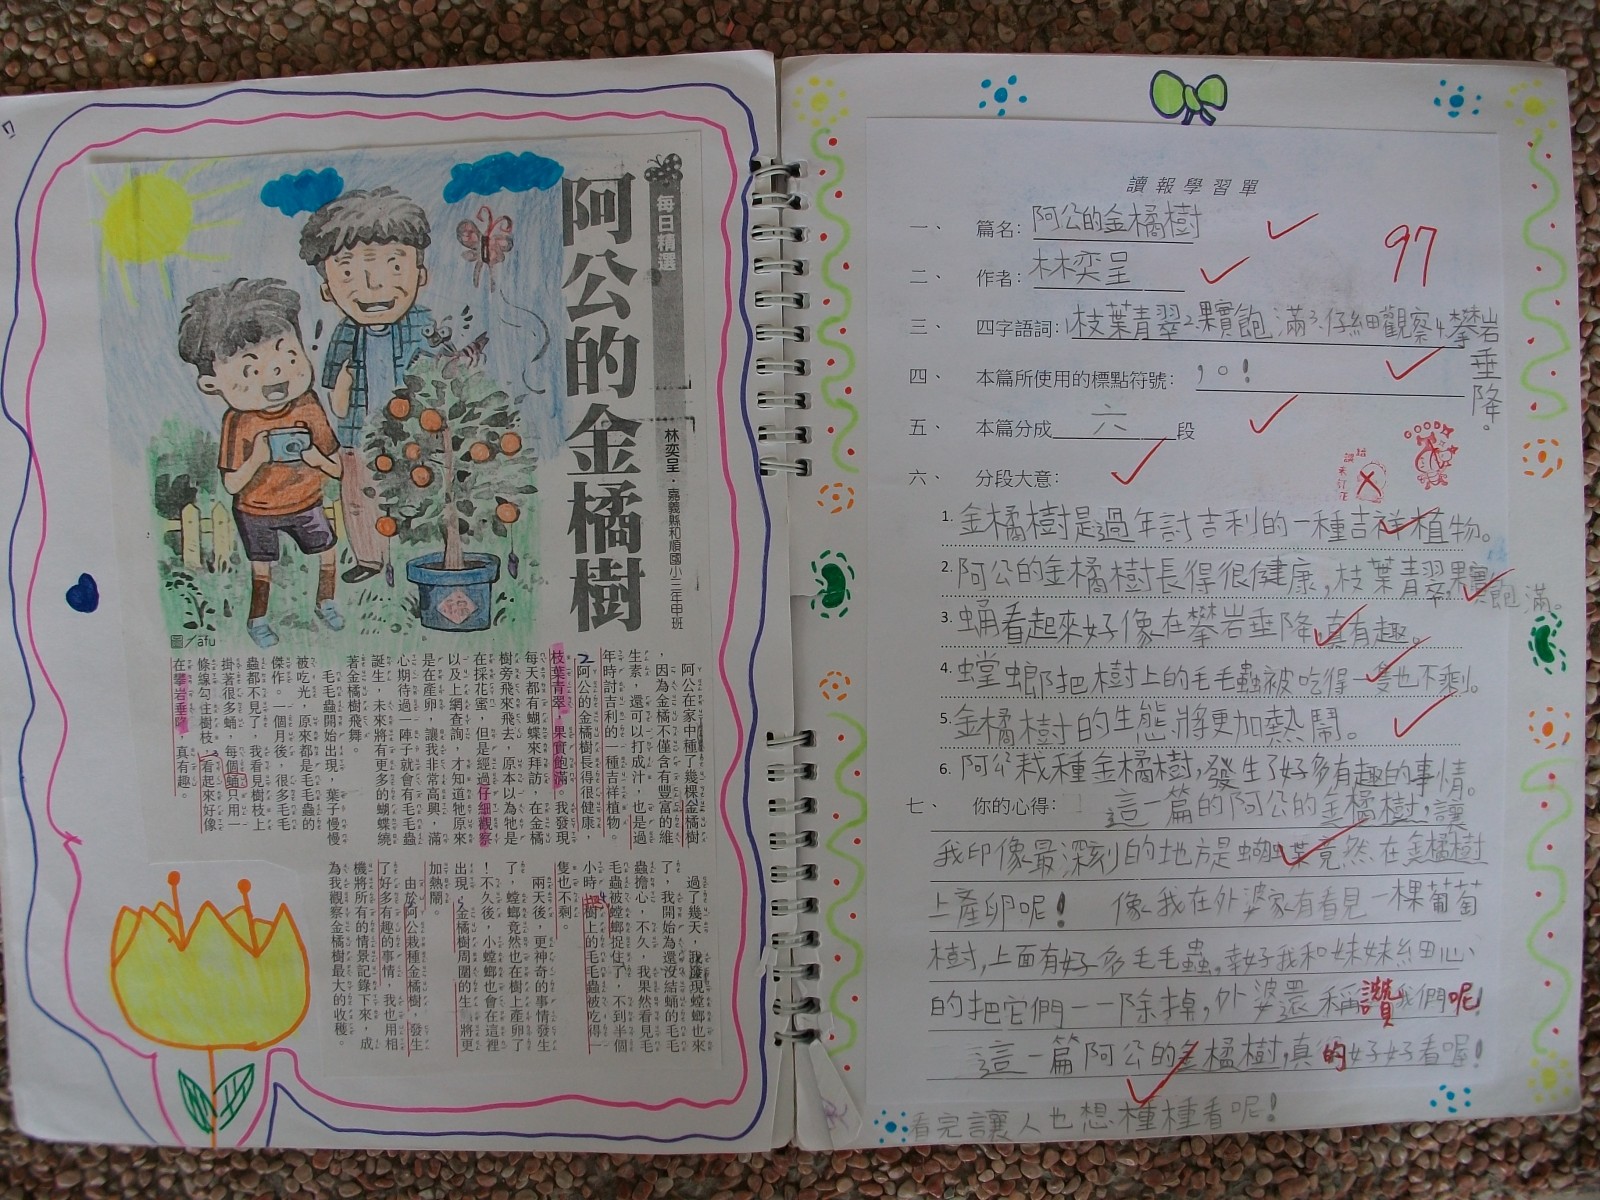 每日精選
阿公的金橘樹
林奕呈・嘉義縣和順國小三年甲班
圖/āfu
福
阿公在家中種了幾棵金橘樹
，因為金橘不僅含有豐富的維
生素，還可以打成汁，也是過
年時討吉利的一種吉祥植物。
2阿公的金橘樹長得很健康，
枝葉青翠，果實飽滿。我發現
每天都有蝴蝶來拜訪，在金橘
樹旁飛來飛去，原本以為牠是
在採花蜜，但是經過仔細觀察
以及上網查詢，才知道牠原來
是在產卵，讓我非常高興，滿
心期待過一陣子就會有毛毛蟲
誕生，未來將有更多的蝴蝶繞
著金橘樹飛舞。
毛毛蟲開始出現，葉子慢慢
被吃光，原來都是毛毛蟲的
傑作。一個月後，很多毛毛
蟲都不見了，我看見樹枝上
掛著很多蛹，每個蛹只用一
條線勾住樹枝，看起來好像
在攀岩垂降，真有趣。
過了幾天，我發現螳螂也來
了，我開始為還沒結蛹的毛毛
蟲擔心，不久，我果然看見毛
毛蟲被螳螂捉住了，不到半個
小時，樹上的毛毛蟲被吃得一
隻也不剩。
兩天後，更神奇的事情發生
了，螳螂竟然也在樹上產卵了
！不久後，小螳螂也會在這裡
出現，金橘樹周圍的生　將更
加熱鬧。
由於阿公栽種金橘樹，發生
了好多有趣的事情，我也用相
機將所有的情景記錄下來，成
為我觀察金橘樹最大的收穫。
讀報學習單
一、 篇名：阿公的金橘樹
97
二、 作者：林奕呈
三、 四字語詞：1枝葉青翠2.果實飽滿3.仔細觀察4.攀岩垂降。
四、 本篇所使用的標點符號：，。！
五、 本篇分成六段
GOOD
六、 分段大意：
1. 金橘樹是過年討吉利的一種吉祥植物。
2. 阿公的金橘樹長得很健康，枝葉青翠，果實飽滿。
3. 蛹看起來好像在攀岩垂降，真有趣。
4. 螳螂把樹上的毛毛蟲被吃得一隻也不剩。
5. 金橘樹的生態將更加熱鬧。
6. 阿公栽種金橘樹，發生了好多有趣的事情。
七、 你的心得：這一篇的阿公的金橘樹，讓
我印像最深刻的地方是蝴蝶竟然在金橘樹
上產卵呢！ 像我在外婆家有看見一棵葡萄
樹，上面有好多毛毛蟲，幸好我和妹妹細心
的把它們一一除掉，外婆還稱讚我們呢！
這一篇阿公的金橘樹，真的好好看喔！
看完讓人也想種種看呢！